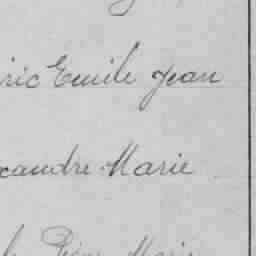 ric Emile Jean
xandre Marie
Marie